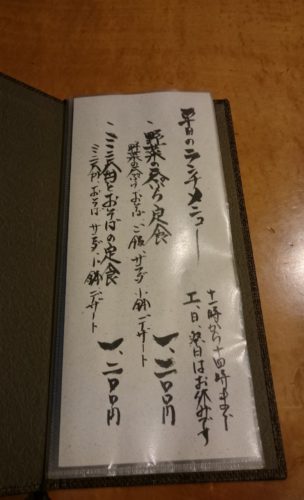 平日のランチメニュー
十一時から十四時まで
土日、祝日はお休みです
、野菜の天ぷら定食
野菜の天ぷら おそば、ご飯 サラダ 小鉢 デザート
一、二〇〇円
、ミニ天丼とおそばの定食
ミニ天丼 おそば サラダ 小鉢 デザート
一、二〇〇円